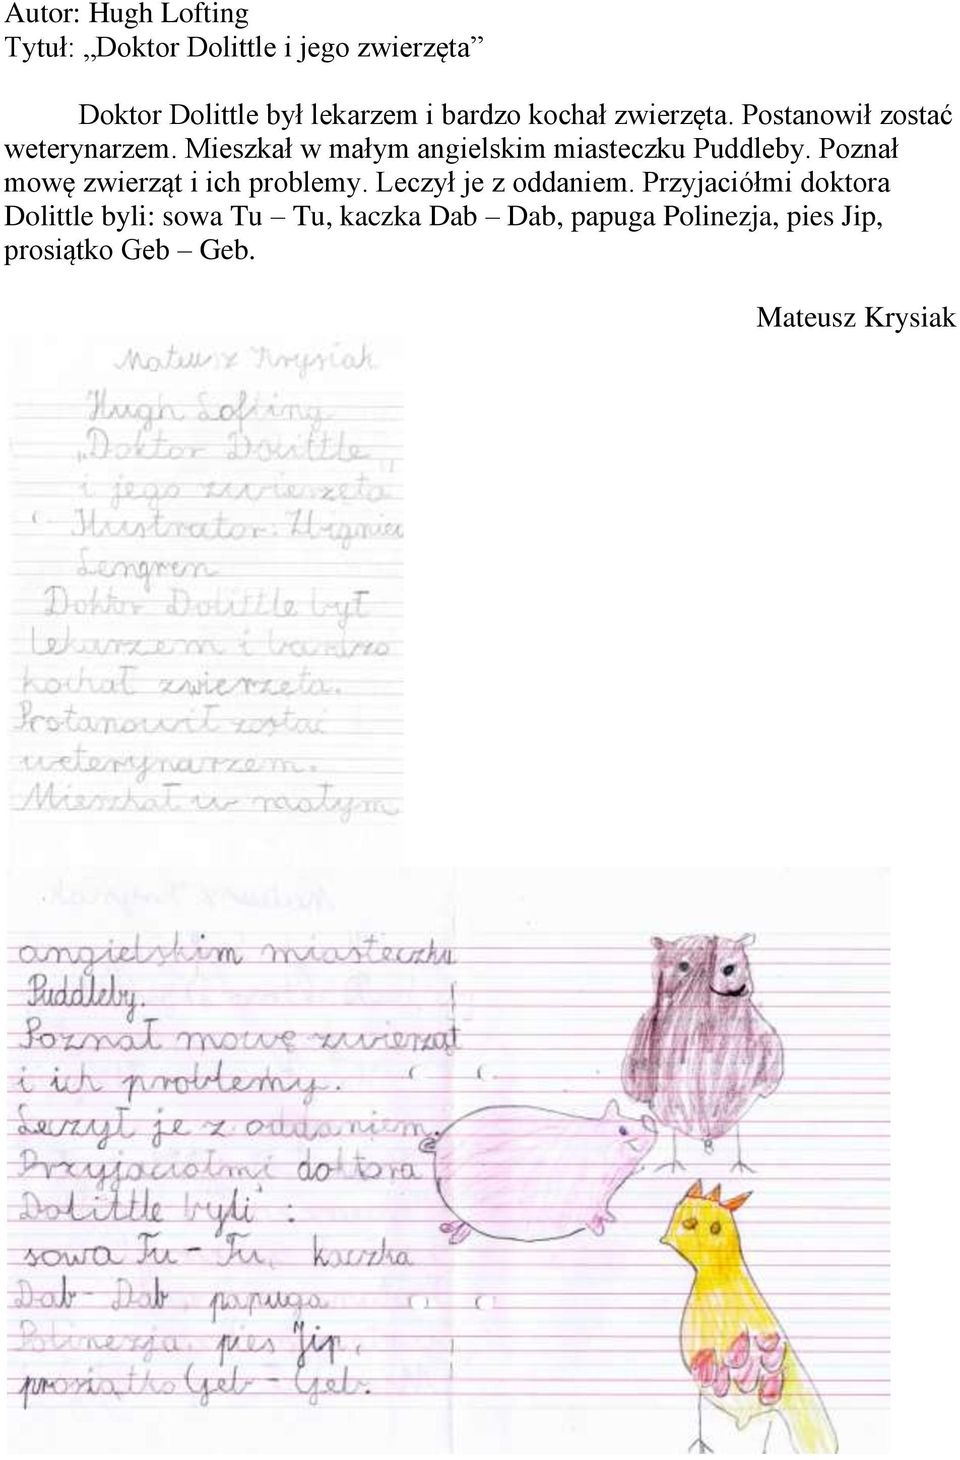 Autor: Hugh Lofting
Tytuł: „Doktor Dolittle i jego zwierzęta”
Doktor Dolittle był lekarzem i bardzo kochał zwierzęta. Postanowił zostać
weterynarzem. Mieszkał w małym angielskim miasteczku Puddleby. Poznał
mowę zwierząt i ich problemy. Leczył je z oddaniem. Przyjaciółmi doktora
Dolittle byli: sowa Tu – Tu, kaczka Dab – Dab, papuga Polinezja, pies Jip,
prosiątko Geb – Geb.
Mateusz Krysiak
Mateusz Krysiak
Hugh Lofting
„Doktor Dolittle
i jego zwierzęta
Ilustrator: Zbigniew
Lengren
Doktor Dolittle był
lekarzem i bardzo
kochał zwierzęta.
Postanowił zostać
weterynarzem.
Mieszkał w małym
angielskim miasteczku
Puddleby.
Poznał mowę zwierząt
i ich problemy.
Leczył je z oddaniem.
Przyjaciółmi doktora
Dolittle byli:
sowa Tu - Tu, kaczka
Dab - Dab, papuga
Polinezja, pies Jip,
prosiątko Geb - Geb.